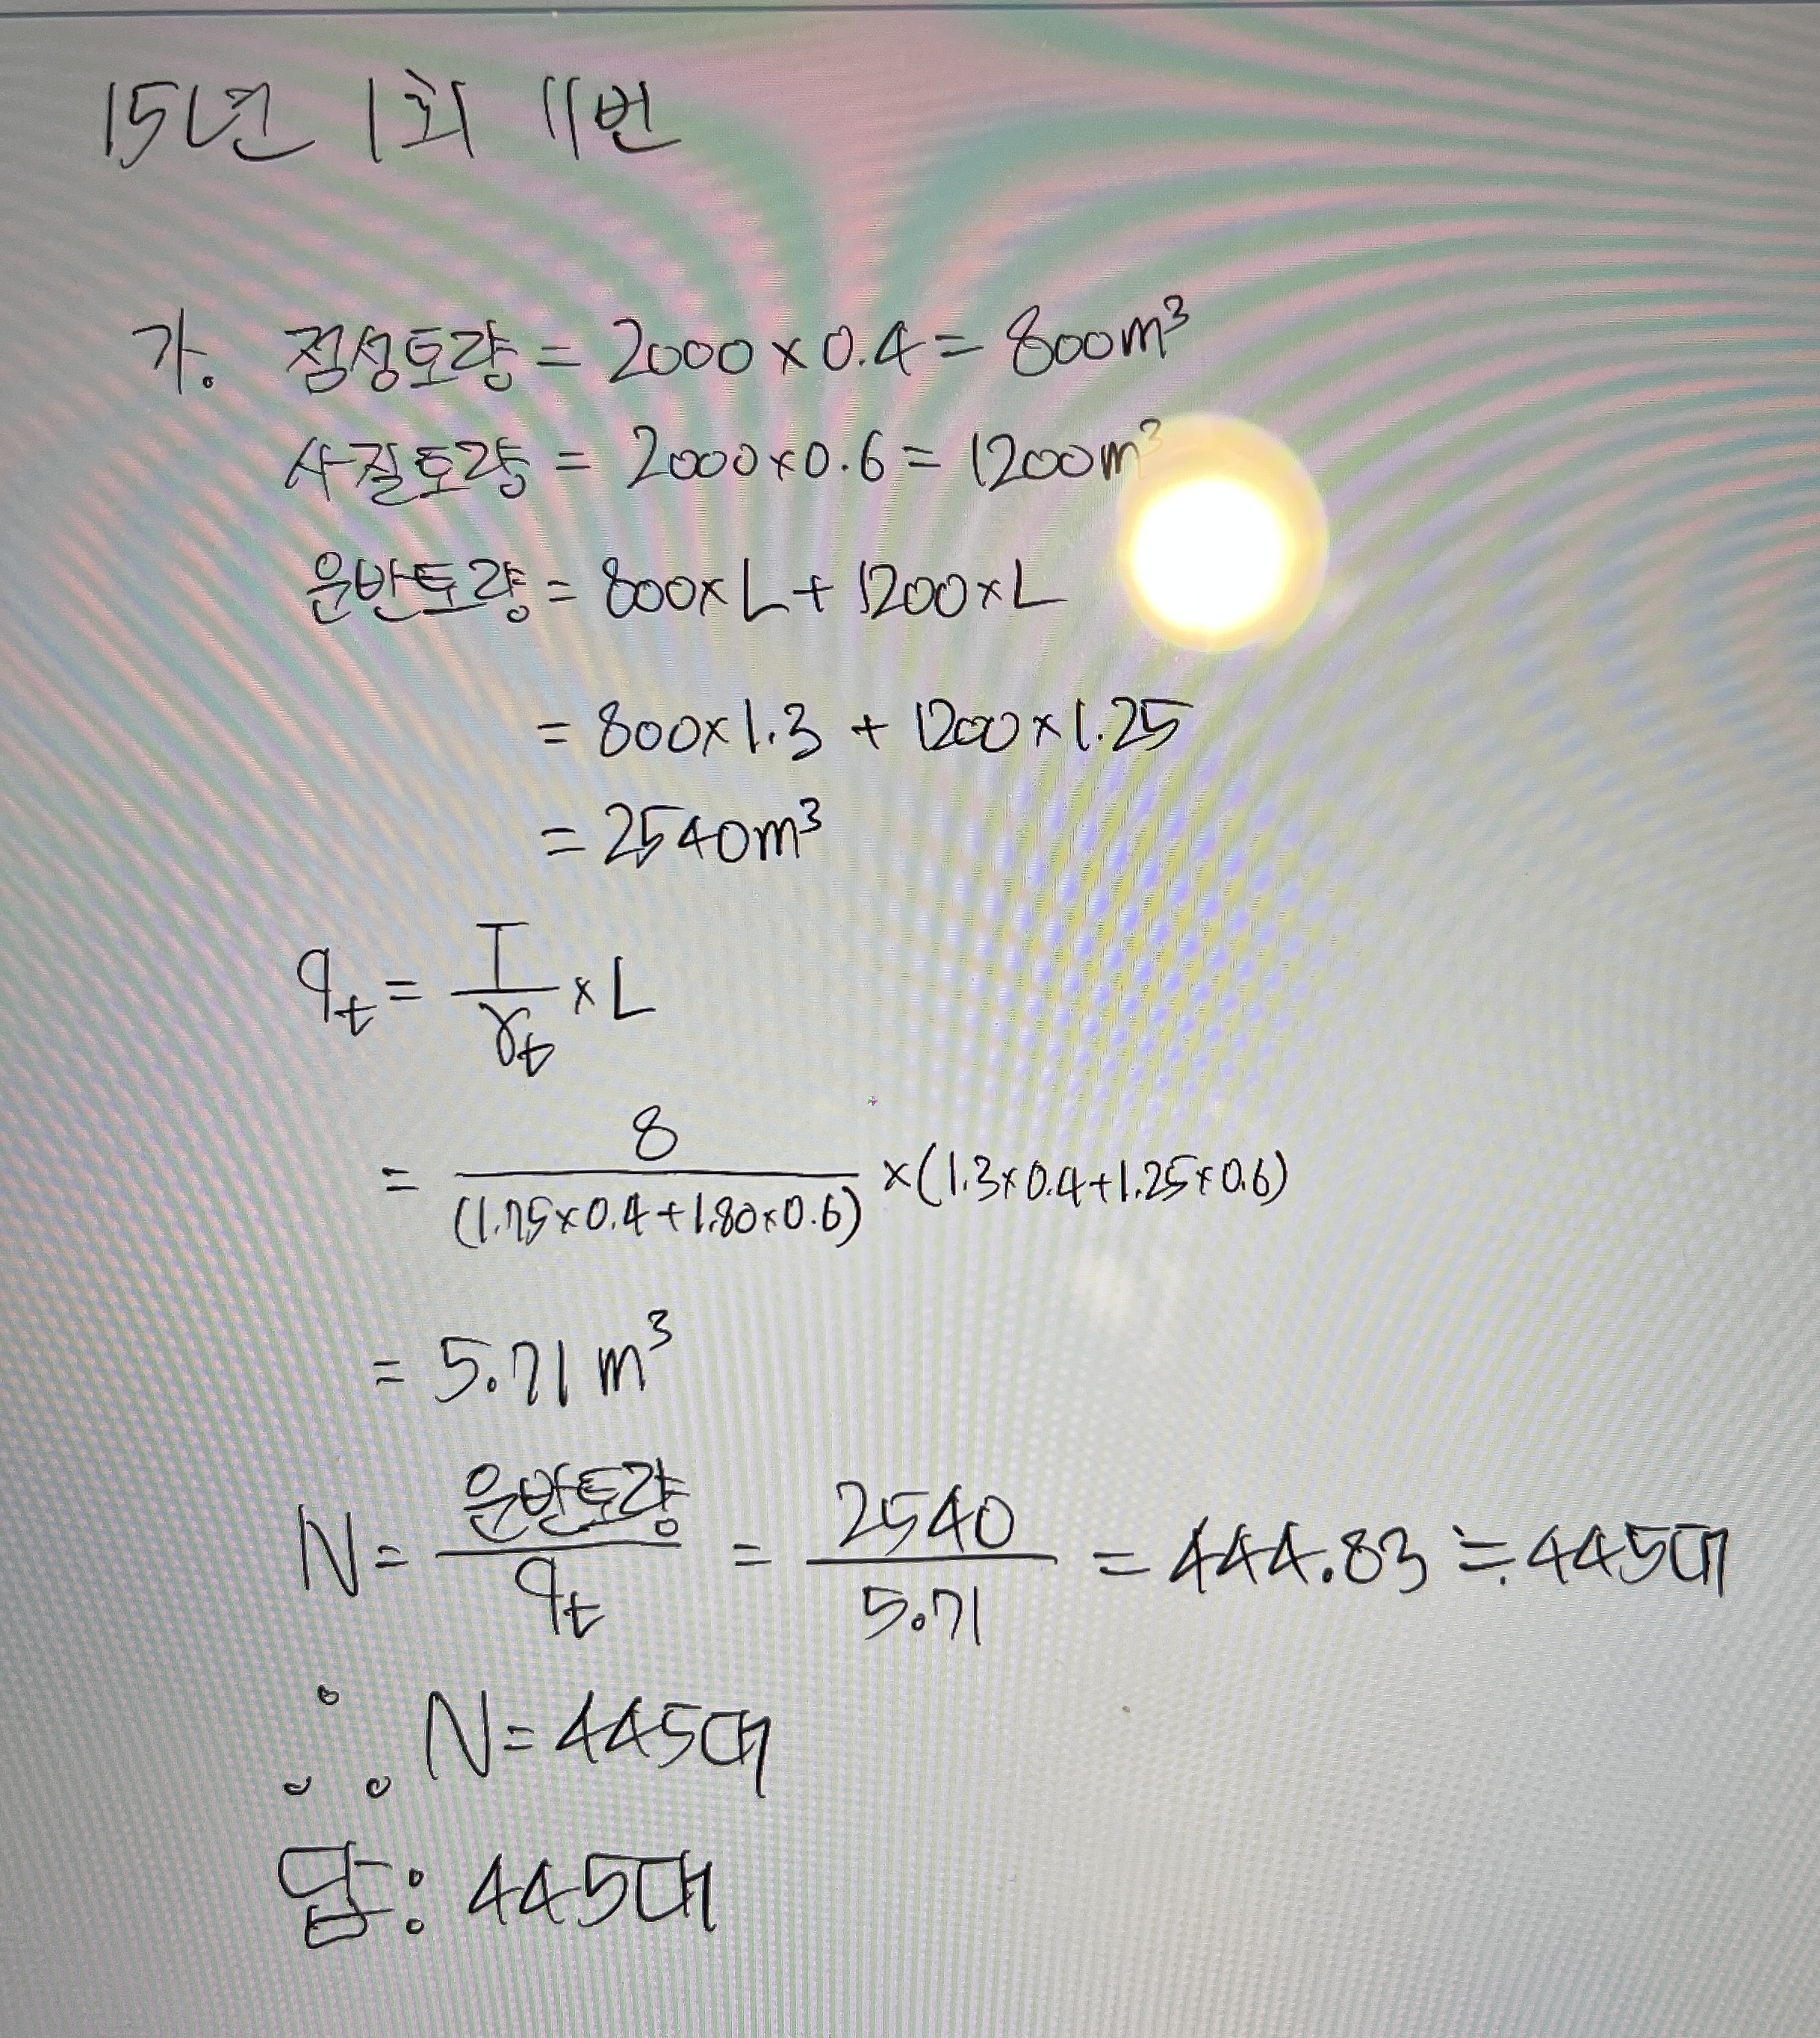 15년 1회 11번
가. 점성토량 = 2000 × 0.4 = 800m³
사질토량 = 2000×0.6 = 1200m³
운반토량 = 800×L + 1200×L
= 800×1.3 + 1200×1.25
= 2540m³
qt = T/γt × L
= 8/(1.75×0.4+1.80×0.6) ×(1.3×0.4+1.25×0.6)
= 5.71 m³
N = 운반토량/qt = 2540/5.71 = 444.83 ≒ 445대
∴ N = 445대
답: 445대